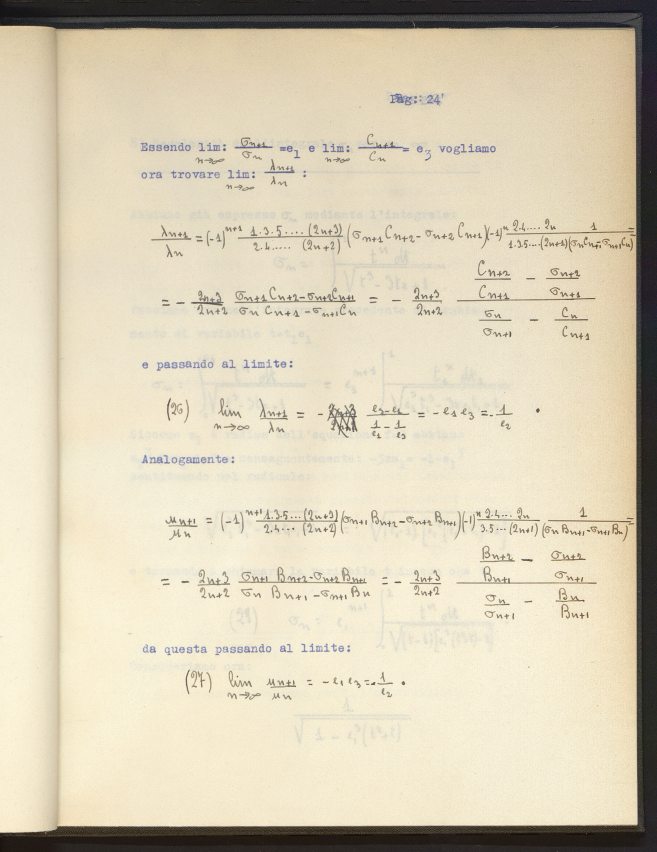 Pag: 24
Essendo lim: n→∞ σn+1/σn =e1 e lim: n→∞ Cn+1/Cn = e3 vogliamo
ora trovare lim: n→∞ λn+1/λn :
λn+1/λn = (-1)^n+1 1.3.5....(2n+3)/2.4.....(2n+2) (σn+1 Cn+2 - σn+2 Cn+1)(-1)^n 2.4.... 2n/1.3.5...(2n+1) 1/(σn Cn+1 - σn+1 Cn) =
= - 2n+3/2n+2 σn+1 Cn+2 - σn+2 Cn+1/σn Cn+1 - σn+1 Cn = - 2n+3/2n+2 (Cn+2/Cn+1 - σn+2/σn+1)/(σn/σn+1 - Cn/Cn+1)
e passando al limite:
(26) lim n→∞ λn+1/λn = - (e3-e1)/(1/e1 - 1/e3) = - e1 e3 = - 1/e2 .
Analogamente:
μn+1/μn = (-1)^n+1 1.3.5...(2n+3)/2.4...(2n+2) (σn+1 Bn+2 - σn+2 Bn+1)(-1)^n 2.4... 2n/3.5...(2n+1) 1/(σn Bn+1 - σn+1 Bn) =
= - 2n+3/2n+2 σn+1 Bn+2 - σn+2 Bn+1/σn Bn+1 - σn+1 Bn = - 2n+3/2n+2 (Bn+2/Bn+1 - σn+2/σn+1)/(σn/σn+1 - Bn/Bn+1)
da questa passando al limite:
(27) lim n→∞ μn+1/μn = - e1 e3 = - 1/e2 .